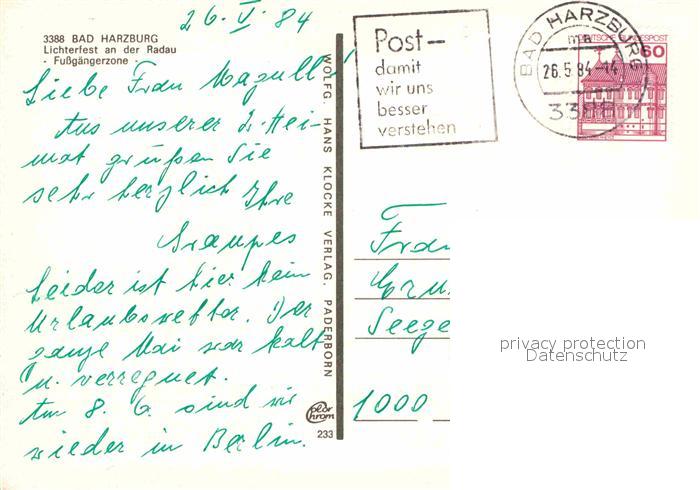 26. V. 84
3388 BAD HARZBURG
Lichterfest an der Radau
- Fußgängerzone -
Liebe Frau Magull!
Aus unserer 2. Hei-
mat grüßen Sie
sehr herzlich Ihre
Graupes
Leider ist hier kein
Urlaubswetter. Der
ganze Mai war kalt
u. verregnet.
Am 8. 6. sind wir
wieder in Berlin.
WOLFG. HANS KLOCKE VERLAG, PADERBORN
color
chrom
233
Post-
damit
wir uns
besser
verstehen
BAD HARZBURG
ma
26.5.84-14
3388
DEUTSCHE BUNDESPOST
60
Frau
Seege
1000
privacy protection
Datenschutz